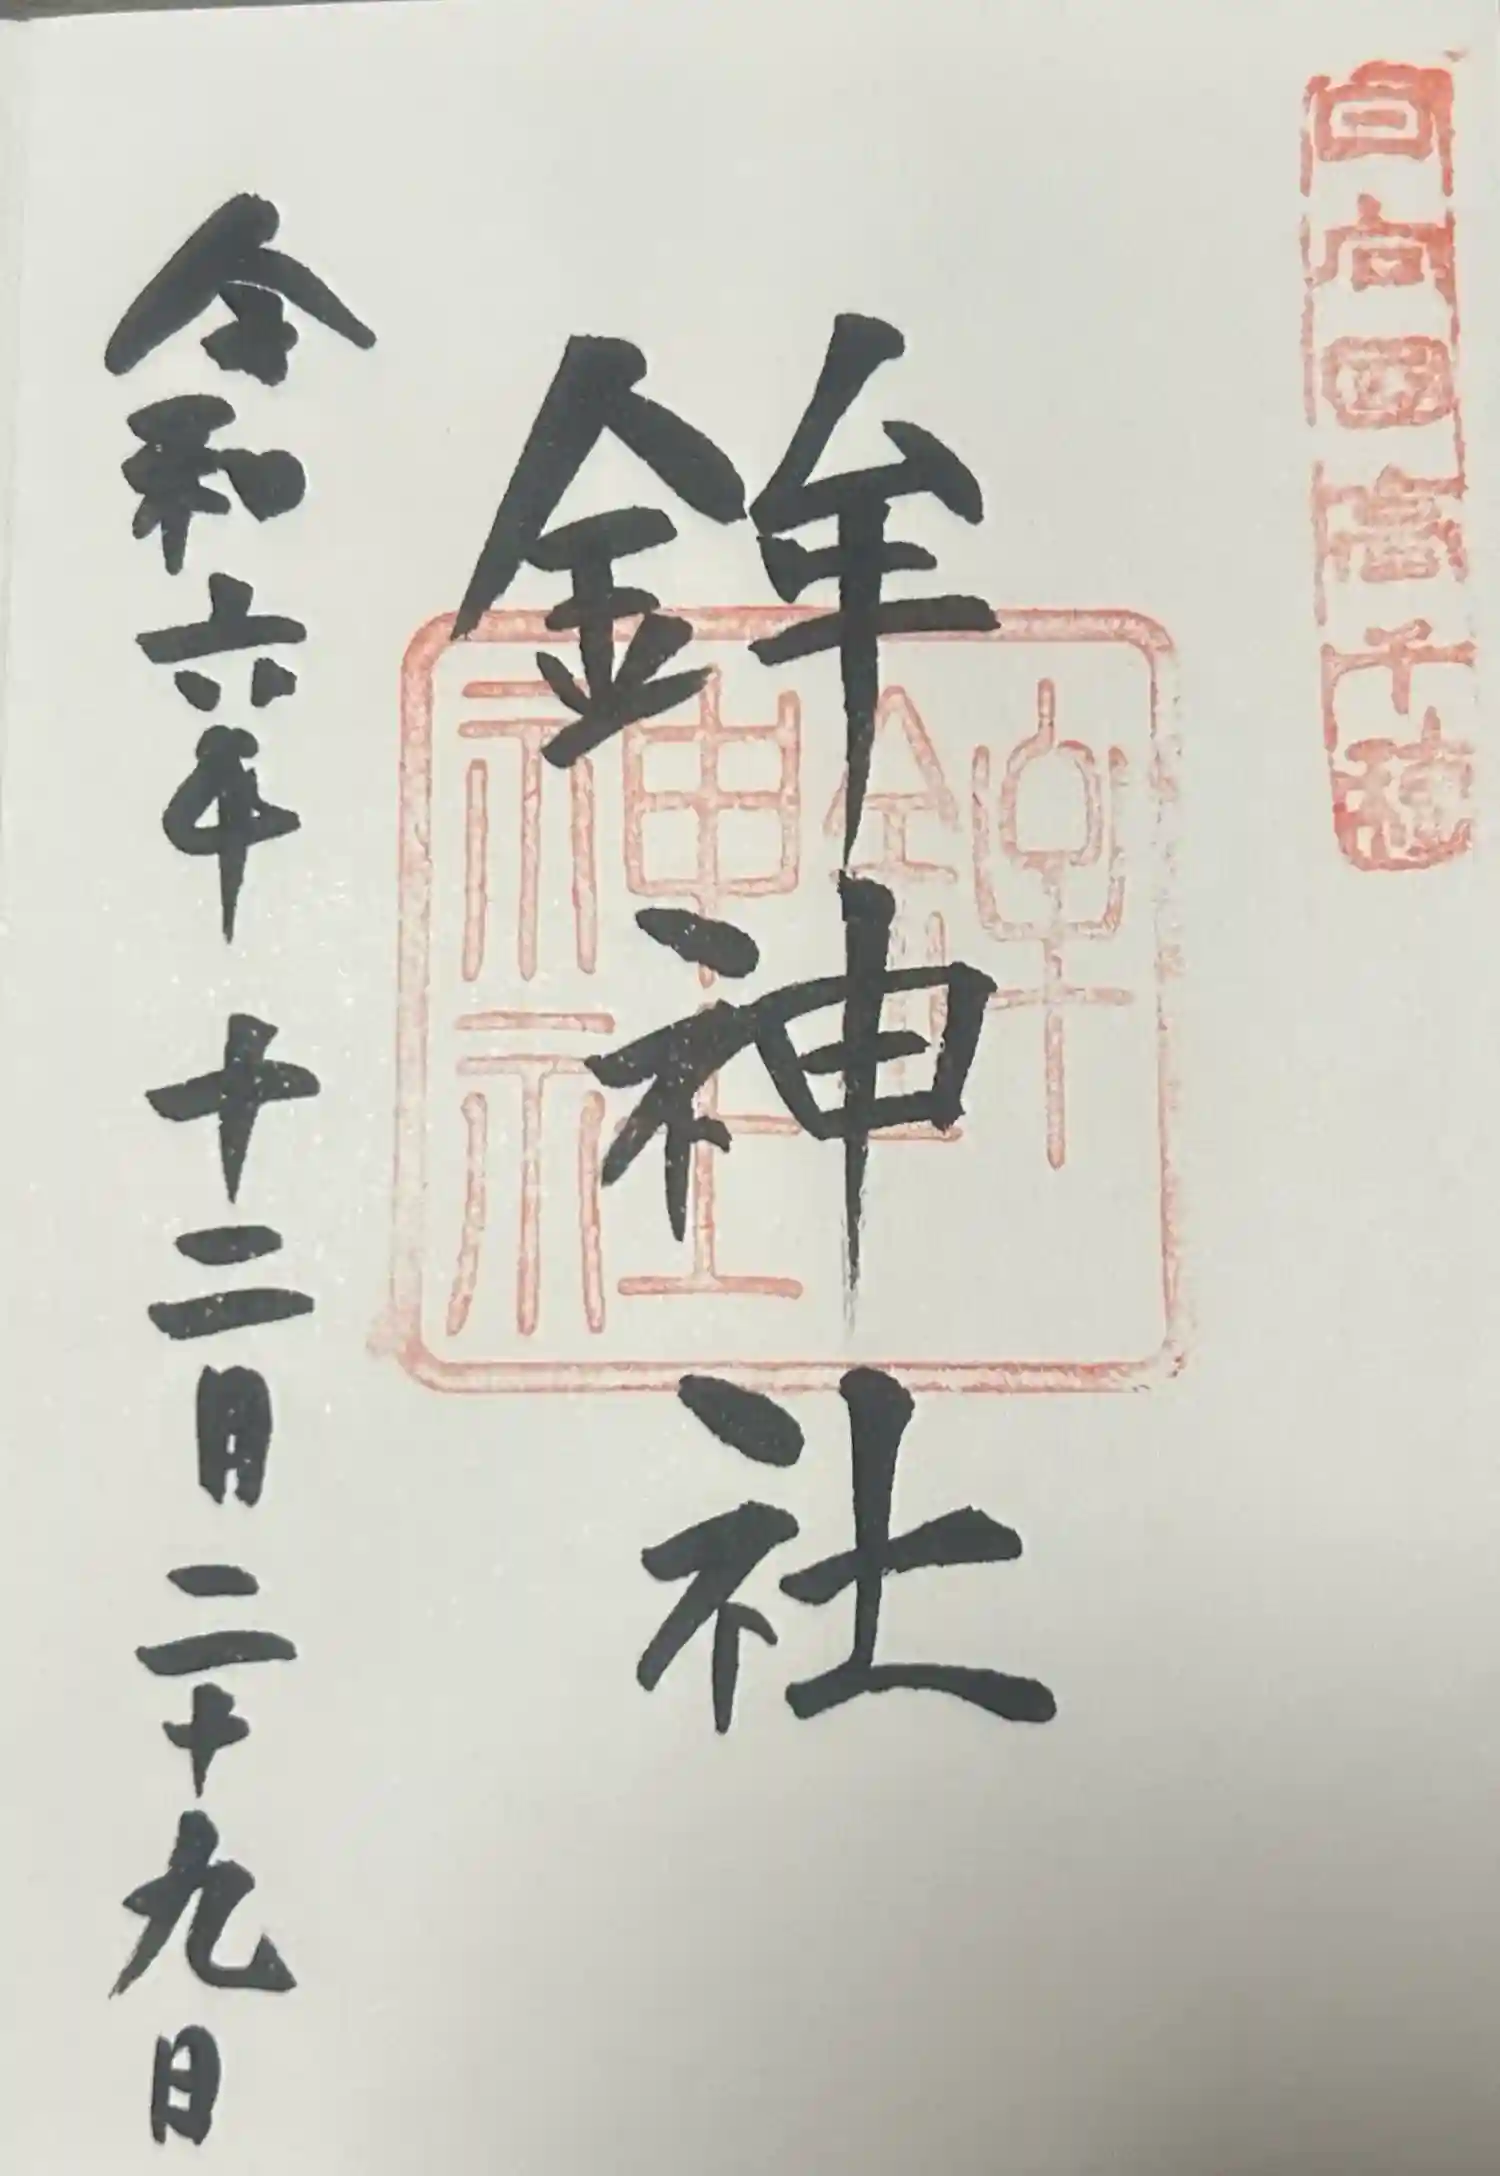 日向国高千穂
鉾神社
鉾神社
令和六年 十二月二十九日